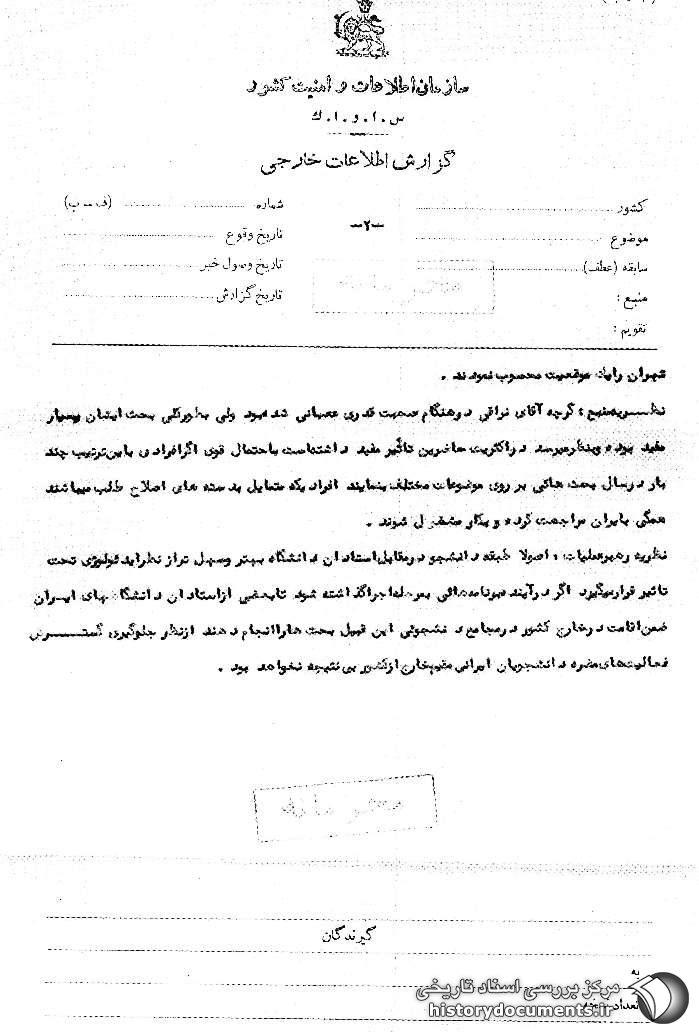 سازمان اطلاعات و امنیت کشور
س.ا.و.ا.ك
گزارش اطلاعات خارجی
کشور
موضوع
سابقه (عطف)
منبع :
تقویم :
-۲-
شماره (ف-ب)
تاریخ وقوع
تاریخ وصول خبر
تاریخ گزارش
محرمانه
تهران را یک موقعیت محسوب نمودند .
نظریه منبع : گرچه آقای نراقی در هنگام صحبت قدری عصبانی شده بود ولی بطورکلی بحث ایشان بسیار
مفید بوده و بنظر میرسد در اکثریت حاضرین تأثیر مفید داشته است باحتمال قوی اگر افرادی باین ترتیب چند
بار در سال بحث هائی بر روی موضوعات مختلف بنمایند افرادیکه متمایل بدسته های اصلاح طلب میباشند
همگی بایران مراجعت کرده و بکار مشغول شوند .
نظریه رهبر عملیات : اصولا طبقه دانشجو در مقابل استادان دانشگاه بهتر و سهل تر از نظر ایدئولوژی تحت
تاثیر قرار میگیرد اگر در آینده برنامه هائی بمرحله اجرا گذاشته شود تا بعضی از استادان دانشگاههای ایران
ضمن اقامت در خارج کشور در مجامع دانشجوئی این قبیل بحث ها را انجام دهند از نظر جلوگیری گسترش
فعالیت های مضره دانشجویان ایرانی مقیم خارج از کشور بی نتیجه نخواهد بود .
محرمانه
گیرندگان
به
تعداد
مرکز بررسی اسناد تاریخی
historydocuments.ir